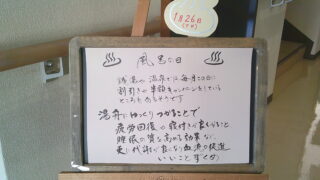 1月26日
♨ 風呂の日 ♨
銭湯や温泉では毎月26日に
割引きや半額キャンペーンをしている
ところもあるそうです
湯舟にゆっくりつかることで
疲労回復や寝付きが良くなると
睡眠の質を高める効果など、
更に代謝が良くなり血流の促進
いいことずくめ